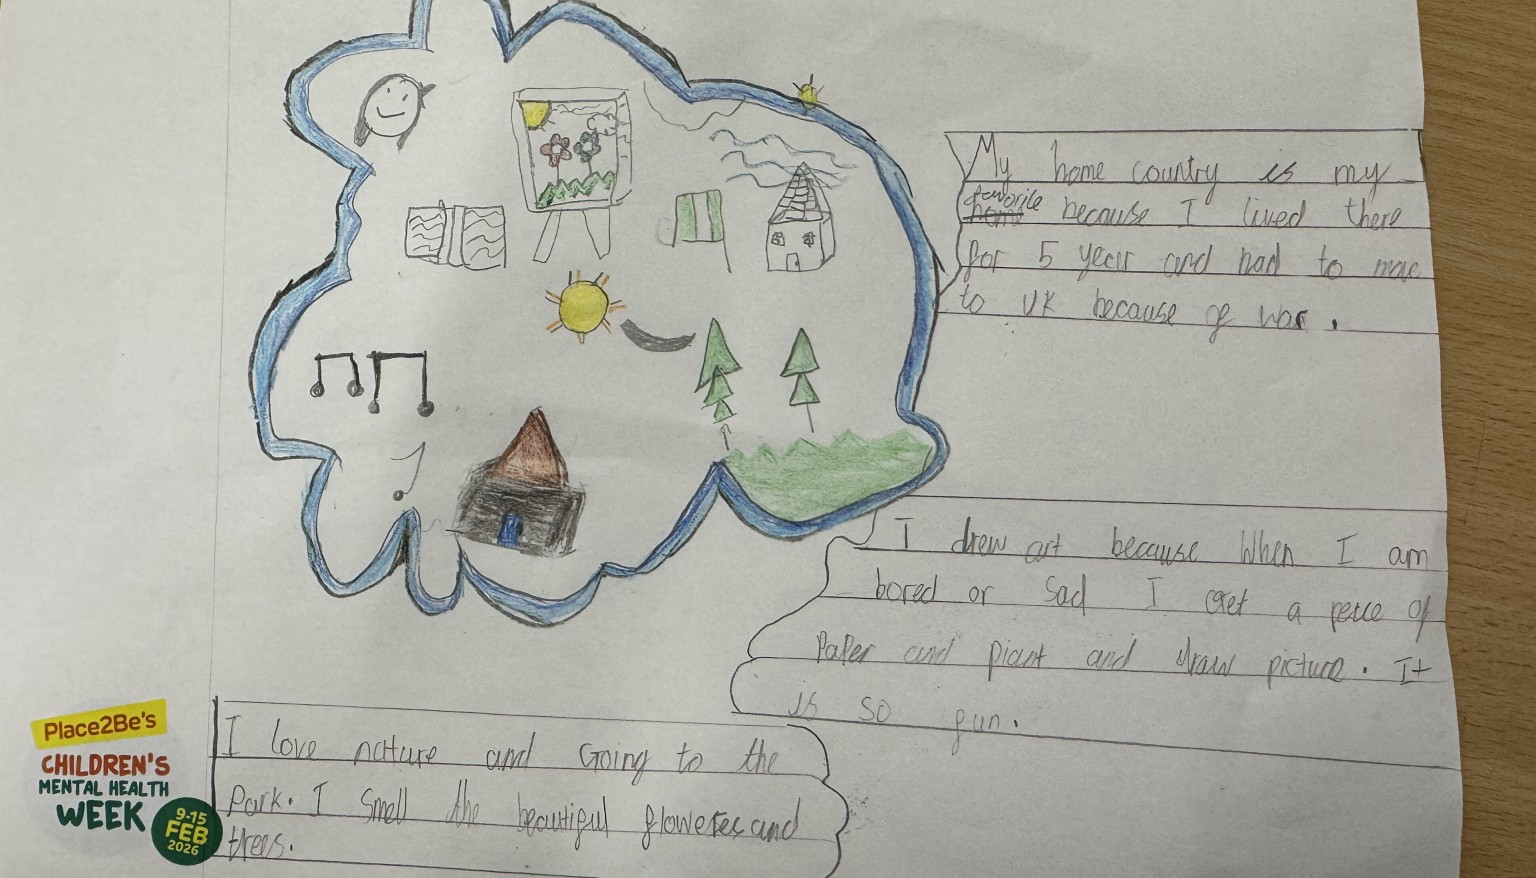 My home country is my
favorite because I lived there
for 5 year and had to move
to UK because of war.
I drew art because When I am
bored or sad I Get a peice of
PaPer and piant and draw picture. It
is so fun.
I love nature and Going to the
Park. I Smell the beautiful floweres and
trees.
Place2Be's
CHILDREN'S
MENTAL HEALTH
WEEK
9-15
FEB
2026